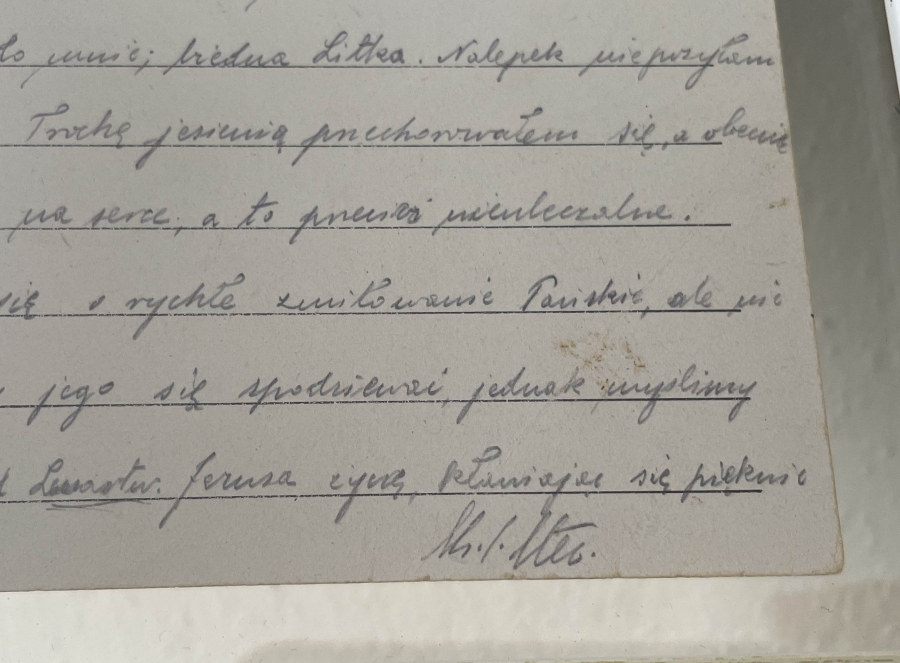 do mnie; biedna Litka. Nalepek nie posyłam
Trochę jesienią przechorowałem się, a obecnie
na serce, a to przecież nieuleczalne.
się o rychłe zmiłowanie Pańskie, ale nie
jego się spodziewać, jednak myślimy
Jerusa życzę, kłaniając się pięknie